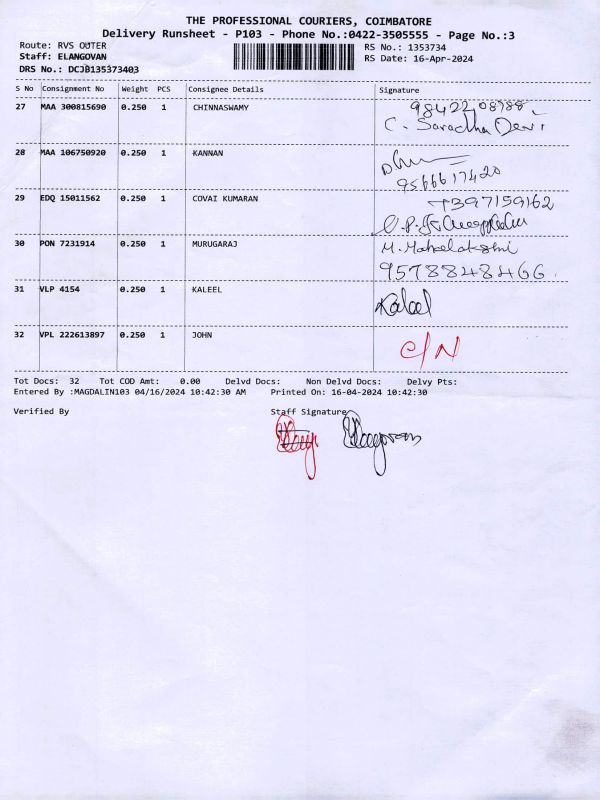 THE PROFESSIONAL COURIERS, COIMBATORE
Delivery Runsheet - P103 - Phone No.:0422-3505555 - Page No.:3
Route: RVS OUTER
RS No.: 1353734
Staff: ELANGOVAN
RS Date: 16-Apr-2024
DRS No.: DCJB135373403
S No Consignment No Weight PCS Consignee Details Signature
27 MAA 300815690 0.250 1 CHINNASWAMY
C. Saradha Devi
28 MAA 106750920 0.250 1 KANNAN
9566617420
29 EDQ 15011562 0.250 1 COVAI KUMARAN
7397159162
30 PON 7231914 0.250 1 MURUGARAJ M. Mahalakshmi
9578848466
31 VLP 4154 0.250 1 KALEEL
Kaleel
32 VPL 222613897 0.250 1 JOHN
C/N
Tot Docs: 32 Tot COD Amt: 0.00 Delvd Docs: Non Delvd Docs: Delvy Pts:
Entered By :MAGDALIN103 04/16/2024 10:42:30 AM Printed On: 16-04-2024 10:42:30
Verified By Staff Signature